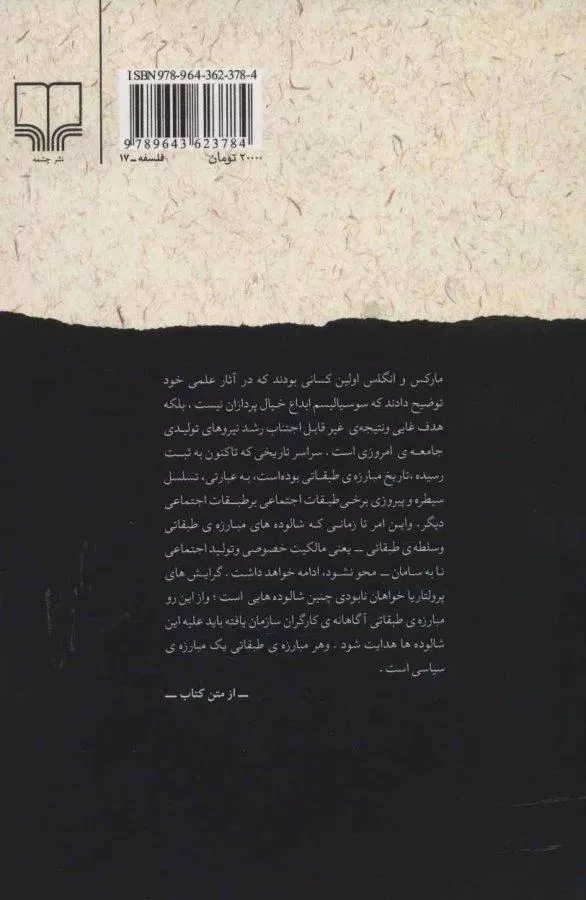 ISBN 978-964-362-378-4
9 789643 623784
نشر چشمه
فلسفه ــ ۱۷
۲۰۰۰۰ تومان
مارکس و انگلس اولین کسانی بودند که در آثار علمی خود
توضیح دادند که سوسیالیسم ابداع خیال پردازان نیست . بلکه
هدف غایی ونتیجه‌ی غیر قابل اجتناب رشد نیروهای تولیدی
جامعه‌ ی امروزی است . سراسر تاریخی که تاکنون به ثبت
رسیده ،تاریخ مبارزه ی طبقاتی بوده‌است، به عبارتی، تسلسل
سیطره و پیروزی برخی طبقات اجتماعی برطبقات اجتماعی
دیگر. واین امر تا زمانی که شالوده های مبارزه ی طبقاتی
وسلطه‌ی طبقاتی ــ یعنی مالکیت خصوصی وتولید اجتماعی
نا به سامان ــ محو نشود، ادامه خواهد داشت . گرایش های
پرولتاریا خواهان نابودی چنین شالوده هایی است ؛ واز این رو
مبارزه ی طبقاتی آگاهانه ی کارگران سازمان یافته باید علیه این
شالوده ها هدایت شود . وهر مبارزه ی طبقاتی یک مبارزه ی
سیاسی است .
ــ از متن کتاب ــ